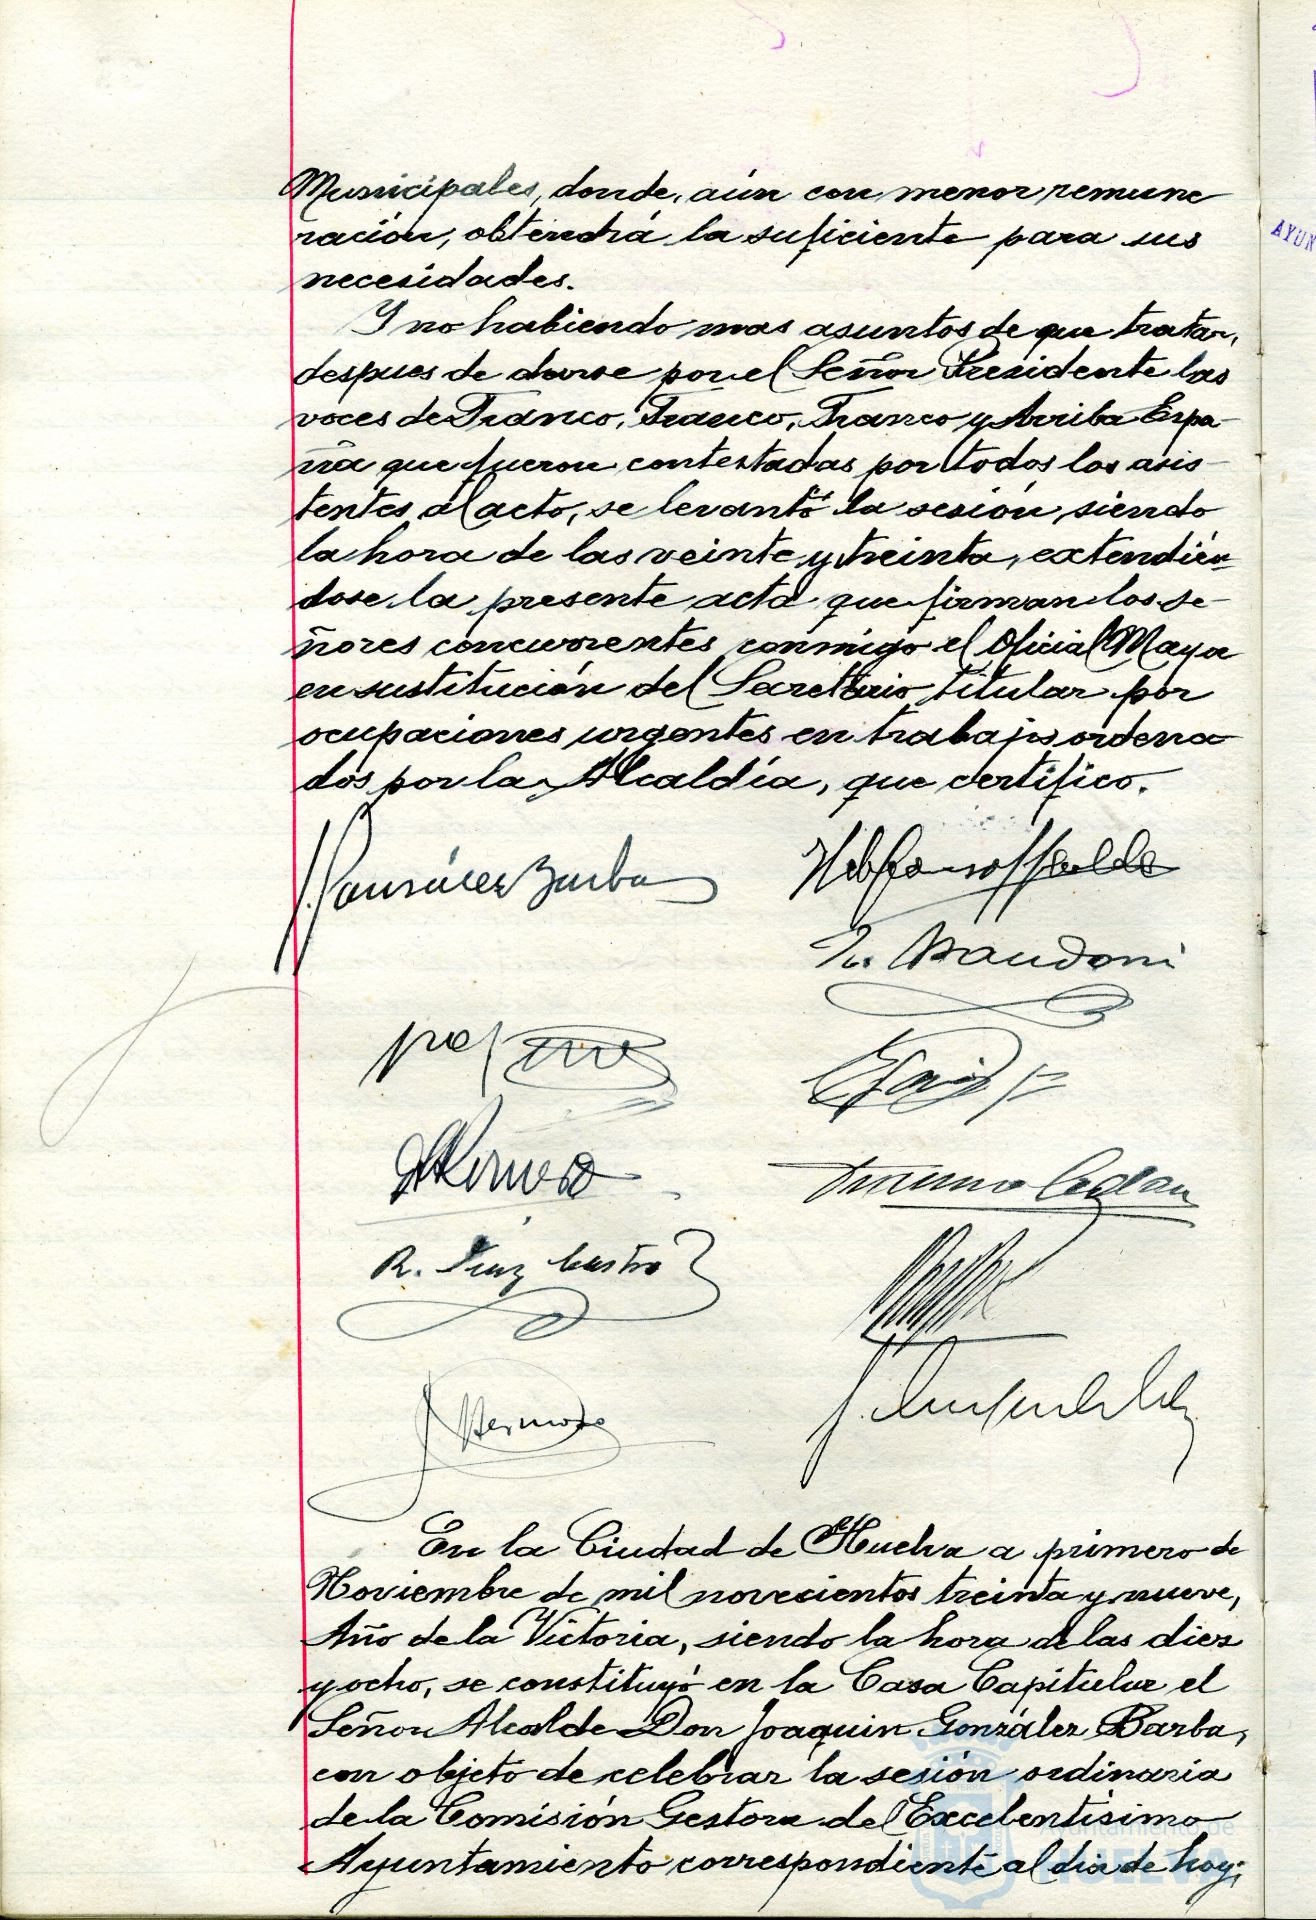 Municipales, donde, aún con menor remune
ración, obtendrá la suficiente para sus
necesidades.
Y no habiendo mas asuntos de que tratar,
despues de darse por el Señor Presidente las
voces de Franco, Franco, Franco y Arriba Espa-
ña que fueron contestadas por todos los asis-
tentes al acto, se levantó la sesión, siendo
la hora de las veinte y treinta, extendién-
dose la presente acta que firman los se-
ñores concurrentes conmigo el Oficial Mayor
en sustitución del Secretario titular por
ocupaciones urgentes en trabajos ordena
dos por la Alcaldía, que certifico.
J. González Barba
R. Diaz Castro
Hermoso
En la Ciudad de Huelva a primero de
Noviembre de mil novecientos treinta y nueve,
Año de la Victoria, siendo la hora de las diez
y ocho, se constituyó en la Casa Capitular el
Señor Alcalde Don Joaquin González Barba,
con objeto de celebrar la sesión ordinaria
de la Comisión Gestora del Excelentísimo
Ayuntamiento correspondiente al dia de hoy;
Ayuntamiento de
HUELVA
AYUN